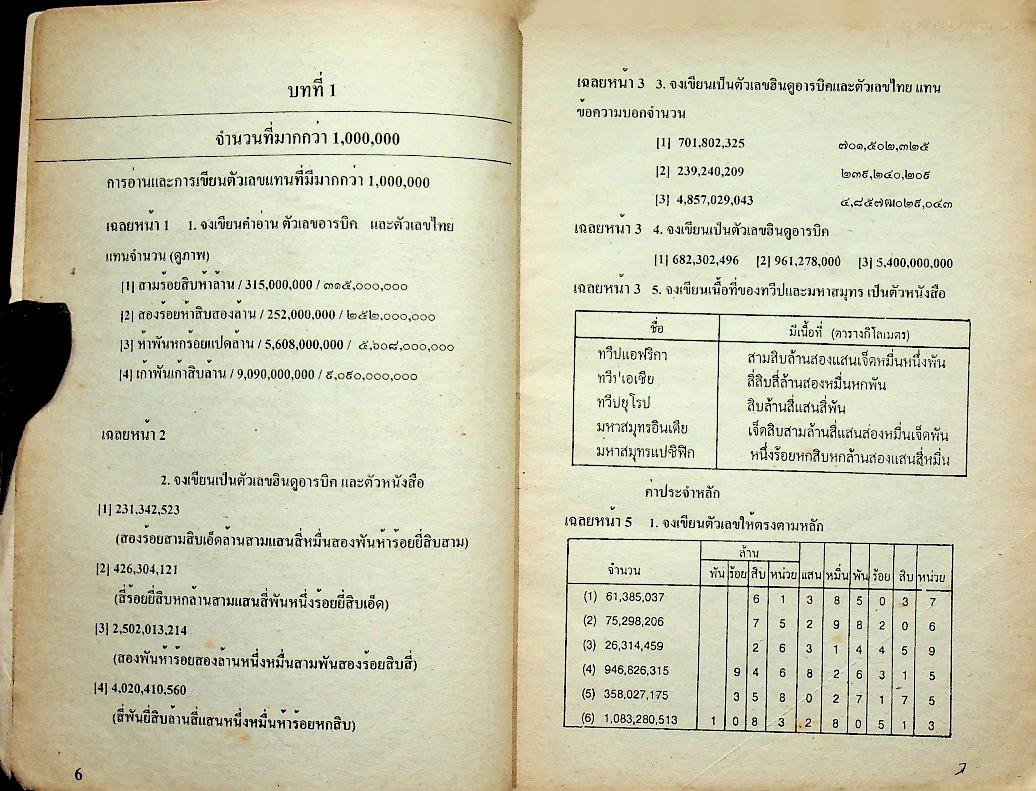 บทที่ 1
จำนวนที่มากกว่า 1,000,000
การอ่านและการเขียนตัวเลขแทนที่มีมากกว่า 1,000,000
เฉลยหน้า 1 1. จงเขียนคำอ่าน ตัวเลขอารบิค และตัวเลขไทย
แทนจำนวน (ดูภาพ)
[1] สามร้อยสิบห้าล้าน / 315,000,000 / ๓๑๕,๐๐๐,๐๐๐
[2] สองร้อยห้าสิบสองล้าน / 252,000,000 / ๒๕๒,๐๐๐,๐๐๐
[3] ห้าพันหกร้อยแปดล้าน / 5,608,000,000 / ๕,๖๐๘,๐๐๐,๐๐๐
[4] เก้าพันเก้าสิบล้าน / 9,090,000,000 / ๙,๐๙๐,๐๐๐,๐๐๐
เฉลยหน้า 2
2. จงเขียนเป็นตัวเลขฮินดูอารบิค และตัวหนังสือ
[1] 231,342,523
(สองร้อยสามสิบเอ็ดล้านสามแสนสี่หมื่นสองพันห้าร้อยยี่สิบสาม)
[2] 426,304,121
(สี่ร้อยยี่สิบหกล้านสามแสนสี่พันหนึ่งร้อยยี่สิบเอ็ด)
[3] 2,502,013,214
(สองพันห้าร้อยสองล้านหนึ่งหมื่นสามพันสองร้อยสิบสี่)
[4] 4,020,410,560
(สี่พันยี่สิบล้านสี่แสนหนึ่งหมื่นห้าร้อยหกสิบ)
6
เฉลยหน้า 3 3. จงเขียนเป็นตัวเลขฮินดูอารบิคและตัวเลขไทย แทน
ข้อความบอกจำนวน
[1] 701,802,325 ๗๐๑,๕๐๒,๓๒๕
[2] 239,240,209 ๒๓๙,๒๔๐,๒๐๙
[3] 4,857,029,043 ๔,๘๕๗๒๐๒๙,๐๔๓
เฉลยหน้า 3 4. จงเขียนเป็นตัวเลขฮินดูอารบิค
[1] 682,302,496 [2] 961,278,000 [3] 5,400,000,000
เฉลยหน้า 3 5. จงเขียนเนื้อที่ของทวีปและมหาสมุทร เป็นตัวหนังสือ
ชื่อ มีเนื้อที่ (ตารางกิโลเมตร)
ทวีปแอฟริกา สามสิบล้านสองแสนเจ็ดหมื่นหนึ่งพัน
ทวีปเอเชีย สี่สิบสี่ล้านสองหมื่นหกพัน
ทวีปยุโรป สิบล้านสี่แสนสี่พัน
มหาสมุทรอินเดีย เจ็ดสิบสามล้านสี่แสนสองหมื่นเจ็ดพัน
มหาสมุทรแปซิฟิก หนึ่งร้อยหกสิบหกล้านสองแสนสี่หมื่น
ค่าประจำหลัก
เฉลยหน้า 5 1. จงเขียนตัวเลขให้ตรงตามหลัก
ล้าน
จำนวน พัน ร้อย สิบ หน่วย แสน หมื่น พัน ร้อย สิบ หน่วย
(1) 61,385,037 6 1 3 8 5 0 3 7
(2) 75,298,206 7 5 2 9 8 2 0 6
(3) 26,314,459 2 6 3 1 4 4 5 9
(4) 946,826,315 9 4 6 8 2 6 3 1 5
(5) 358,027,175 3 5 8 0 2 7 1 7 5
(6) 1,083,280,513 1 0 8 3 2 8 0 5 1 3
7